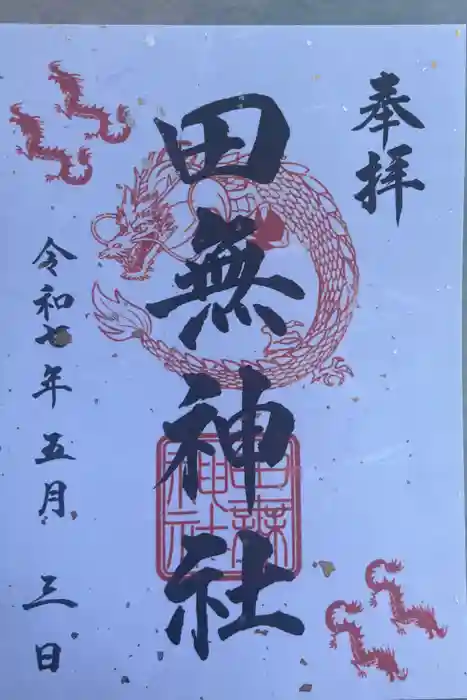 奉拝
田無神社
田無
神社
令和七年五月三日